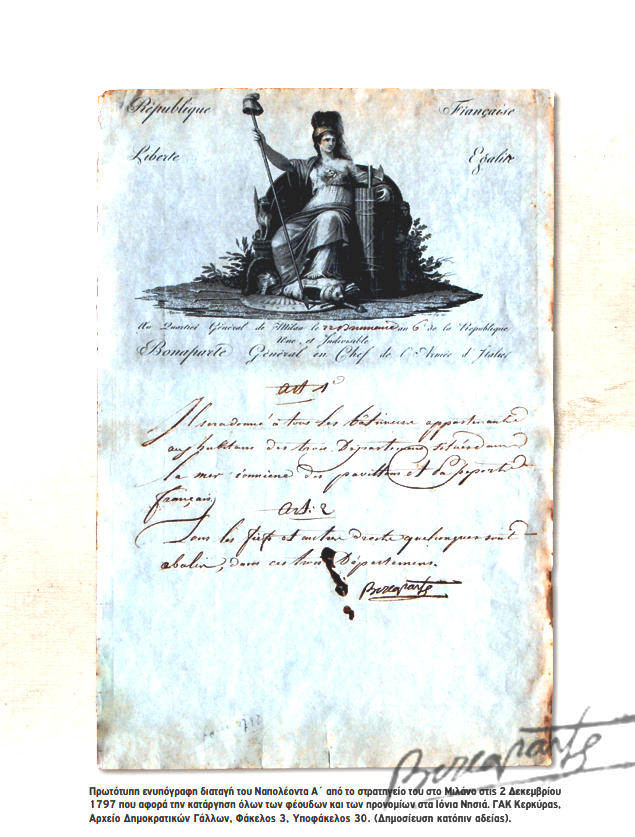 République Française
Liberté Egalité
Au Quartier Général de Milan le 22 Brumaire an 6 de la République
Une et Indivisible
Bonaparte Général en Chef de l'Armée d'Italie
art 1
Il sera donné à tous les bâtiments appartenants
aux habitans des trois Départemens situés dans
la mer ionniene des pavillons et passeports
français
Art. 2
Tous les fiefs et autres droits quelconques sont
abolis, dans ces trois Départemens.
Bonaparte
Bonaparte
Πρωτότυπη ενυπόγραφη διαταγή του Ναπολέοντα Α΄ από το στρατηγείο του στο Μιλάνο στις 2 Δεκεμβρίου
1797 που αφορά την κατάργηση όλων των φέουδων και των προνομίων στα Ιόνια Νησιά. ΓΑΚ Κερκύρας,
Αρχείο Δημοκρατικών Γάλλων, Φάκελος 3, Υποφάκελος 30. (Δημοσίευση κατόπιν αδείας).